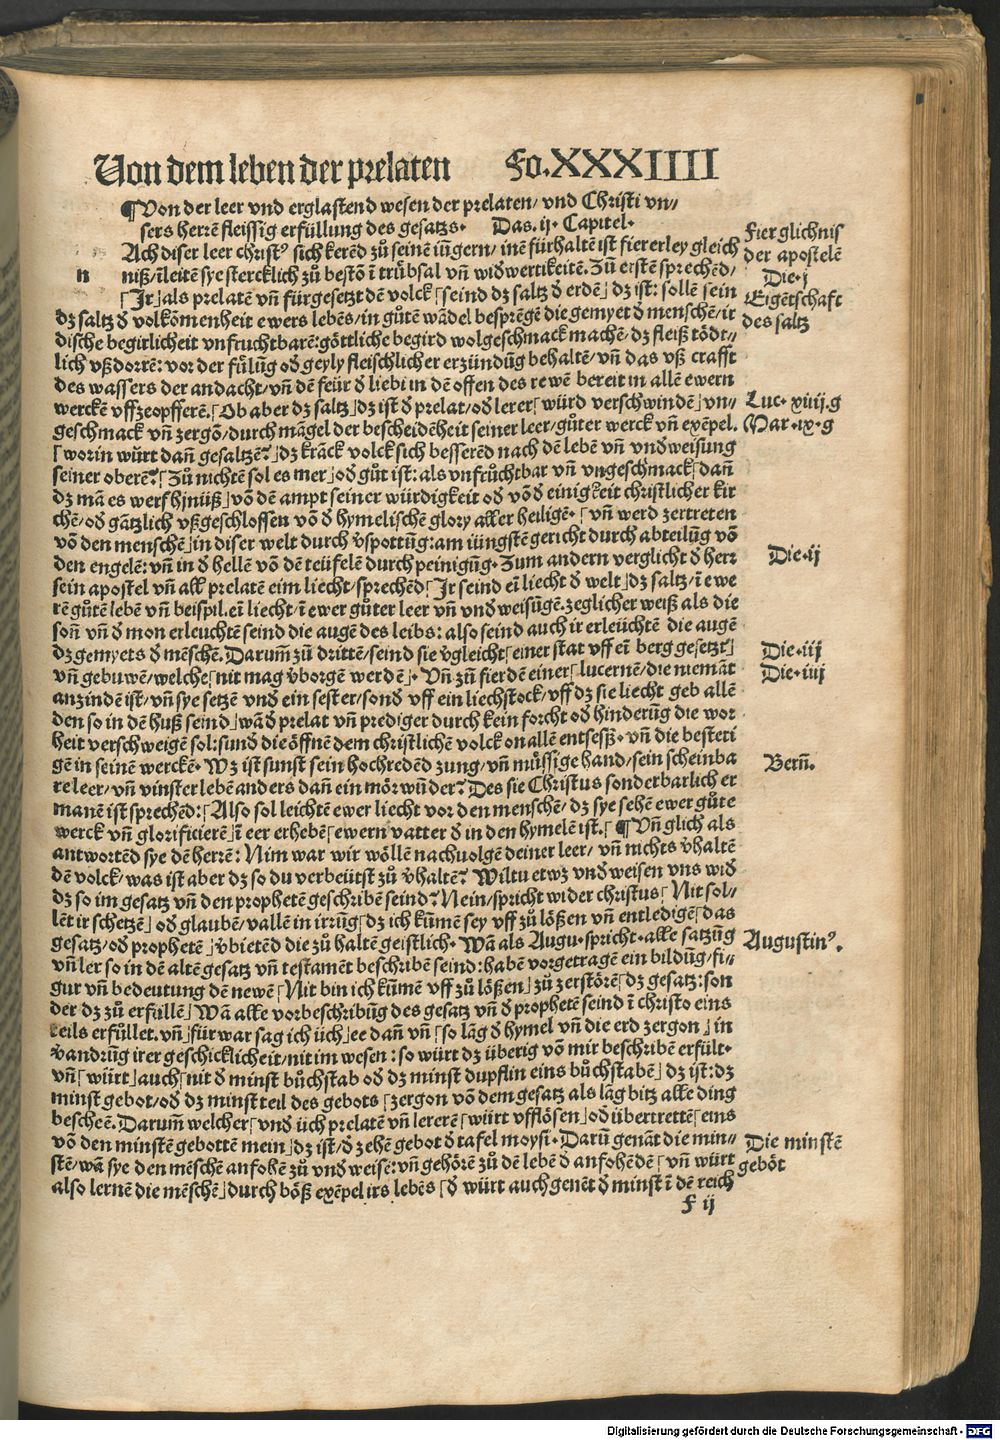 Von dem leben der prelaten Fo.XXXIIII
¶Von der leer vnd erglastend wesen der prelaten/ vnd Christi vn⸗
sers herrē fleissig erfüllung des gesatzs. Das. ij. Capitel.
n
Ach diser leer christꝰ sich kerēd zů seinē iūgern/ inē fürhaltē ist fiererley gleich
niß/inleitē sye stercklich zů bestō ī trůbsal vn̄ widwertikeitē. Zū erstē sprechēd/
⌈Jr⌋als prelatē vn̄ fürgesetzt dē volck⌈seind dz saltz ď erdē⌋ dz ist: sollē sein
dz saltz ď volkōmenheit ewers lebēs/in gůtē wādel besprēgē die gemyet ď menschē/ir
dische begirlicheit vnfruchtbarē:göttliche begird wolgeschmack machē/dz fleiß tödt⸗
lich vßdorrē: vor der fůlūg oď geyly fleischlicher erzündūg behaltē/vn̄ das vß crafft
des wassers der andacht/vn̄ dē feür ď liebi in dē offen des rewē bereit in allē ewern
werckē vffzeopfferē.⌈Ob aber dz saltz⌋dz ist ď prelat/oď lerer⌈würd verschwindē⌋vn⸗
geschmack vn̄ zergō/durch māgel der bescheidēheit seiner leer/gůter werck vn̄ exēpel.
⌈worin würt dan̄ gesaltzē?⌋dz krāck volck sich besserēd nach dē lebē vn̄ vndweisung
seiner oberē?⌈Zů nichtē sol es mer⌋oď gůt ist: als vnfrůchtbar vn̄ vngeschmack⌈dan̄
dz mā es werf hjnüß⌋vō dē ampt seiner würdigkeit oď vōď einigkeit christlicher kir
chē/oď gātzlich vßgeschlossen vō ď hymelischē glory aller heiligē.⌈vn̄ werd zertreten
vō den menschē⌋in diser welt durch ďspottūg:am iüngstē gericht durch abteilūg vō
den engelē:vn̄ in ď hellē vō dē teüfelē durch peinigūg. Zum andern verglicht ď herr
sein apostel vn̄ all prelatē eim liecht/sprechēd⌈Jr seind eī liecht ď welt⌋dz saltz/ī ewe
rē gůtē lebē vn̄ beispil.eī liecht/ī ewer gůter leer vn̄ vndweisūgē.zeglicher weiß als die
son̄ vn̄ ď mon erleuchtē seind die augē des leibs: also seind auch ir erleüchtē die augē
dz gemyets ď mēschē.Darum̄ zů drittē/seind sie ďgleicht⌈einer stat vff eī berg gesetzt⌋
vn̄ gebuwē/welche⌈nit mag ďborgē werdē⌋. Vn̄ zū fierdē einer⌈lucernē/die niemāt
anzindē ist/vn̄ sye setzē vnd ein sester/sonď vff ein liechstock/vff dz sie liecht geb allē
den so in dē huß seind⌋wā ď prelat vn̄ prediger durch kein forcht oď hinderūg die wor
heit verschweigē sol:sund die öffnē dem christlichē volck on allē entsessz. vn̄ die besteti
gē in seinē werckē. Wz ist sunst sein hochredēd zung/vn̄ müssige hand/sein scheinba
re leer/vn̄ vinster lebē anders dan̄ ein mörwūder? Des sie Christus sonderbarlich er
manē ist sprechēd:⌈Also sol leichtē ewer liecht vor den menschē/dz sye sehē ewer gůte
werck vn̄ glorificierē⌋ī eer erhebē⌈ewern vatter ď in den hymelē ist.⌈¶Vn̄ glich als
antwortēd sye dē herrē: Nim war wir wöllē nachuolgē deiner leer/ vn̄ nichts ďhaltē
dē volck/was ist aber dz so du verbeütst zů ďhaltē? Wiltu etwz vndweisen vns wid
dz so im gesatz vn̄ den prophetē geschribē seind? Nein/spricht wider christus⌈Nit sol⸗
lēt ir schetzē⌋oď glaubē/vallē in irrūg⌈dz ich kūmē sey vff zů lößen vn̄ entledigē⌈das
gesatz/oď prophetē⌋ďbietēd die zů haltē geistlich. Wā als Augu.spricht.alle satzūg
vn̄ ler so in dē altē gesatz vn̄ testamēt beschribē seind:habē vorgetragē ein bildūg/fi⸗
gur vn̄ bedeutung dē newē⌈Nit bin ich kūmē vff zů lößen⌋zů zerstörē⌈dz gesatz:son
der dz zů erfüllē⌋Wā alle vorbeschribūg des gesatz vn̄ ď prophetē seind ī christo eins
teils erfůllet.vn̄⌋für war sag ich üch⌋ee dan̄ vn̄⌈so lāg ď hymel vn̄ die erd zergon⌋in
ďandrūg irer geschicklicheit/nit im wesen: so würt dz überig vō mir beschribē erfült.
vn̄⌈würt⌋auch⌈nit ď minst bůchstab oď dz minst dupflin eins bůchstabē⌋dz ist:dz
minst gebot/oď dz minst teil des gebots⌈zergon vō dem gesatz als lāg bitz alle ding
bescheē.Darum̄ welcher⌈vnd üch prelatē vn̄ lererē⌈würt vfflösen⌋oď übertrettē⌈eins
vō den minstē gebottē mein⌋dz ist/ď zehē gebot ď tafel moysi. Darū genāt die min⸗
stē/wā sye den mēschē anfohē zů vndweisē:vn̄ gehörē zů dē lebē ď anfohēdē⌈vn̄ würt
also lernē die mēschē⌋durch bōß exēpel irs lebēs⌈ď würt auch genēt ď minst ī dē reich
F ij
Fier glichnis
der apostelē
Die.j
Eigētschaft
des saltz
Luc. xiiij.g
Mar.ix.g
Die.ij
Die.iij
Die.iiij
Bern̄.
Augustinꝰ.
Die minstē
geböt
Digitalisierung gefördert durch die Deutsche Forschungsgemeinschaft - DFG